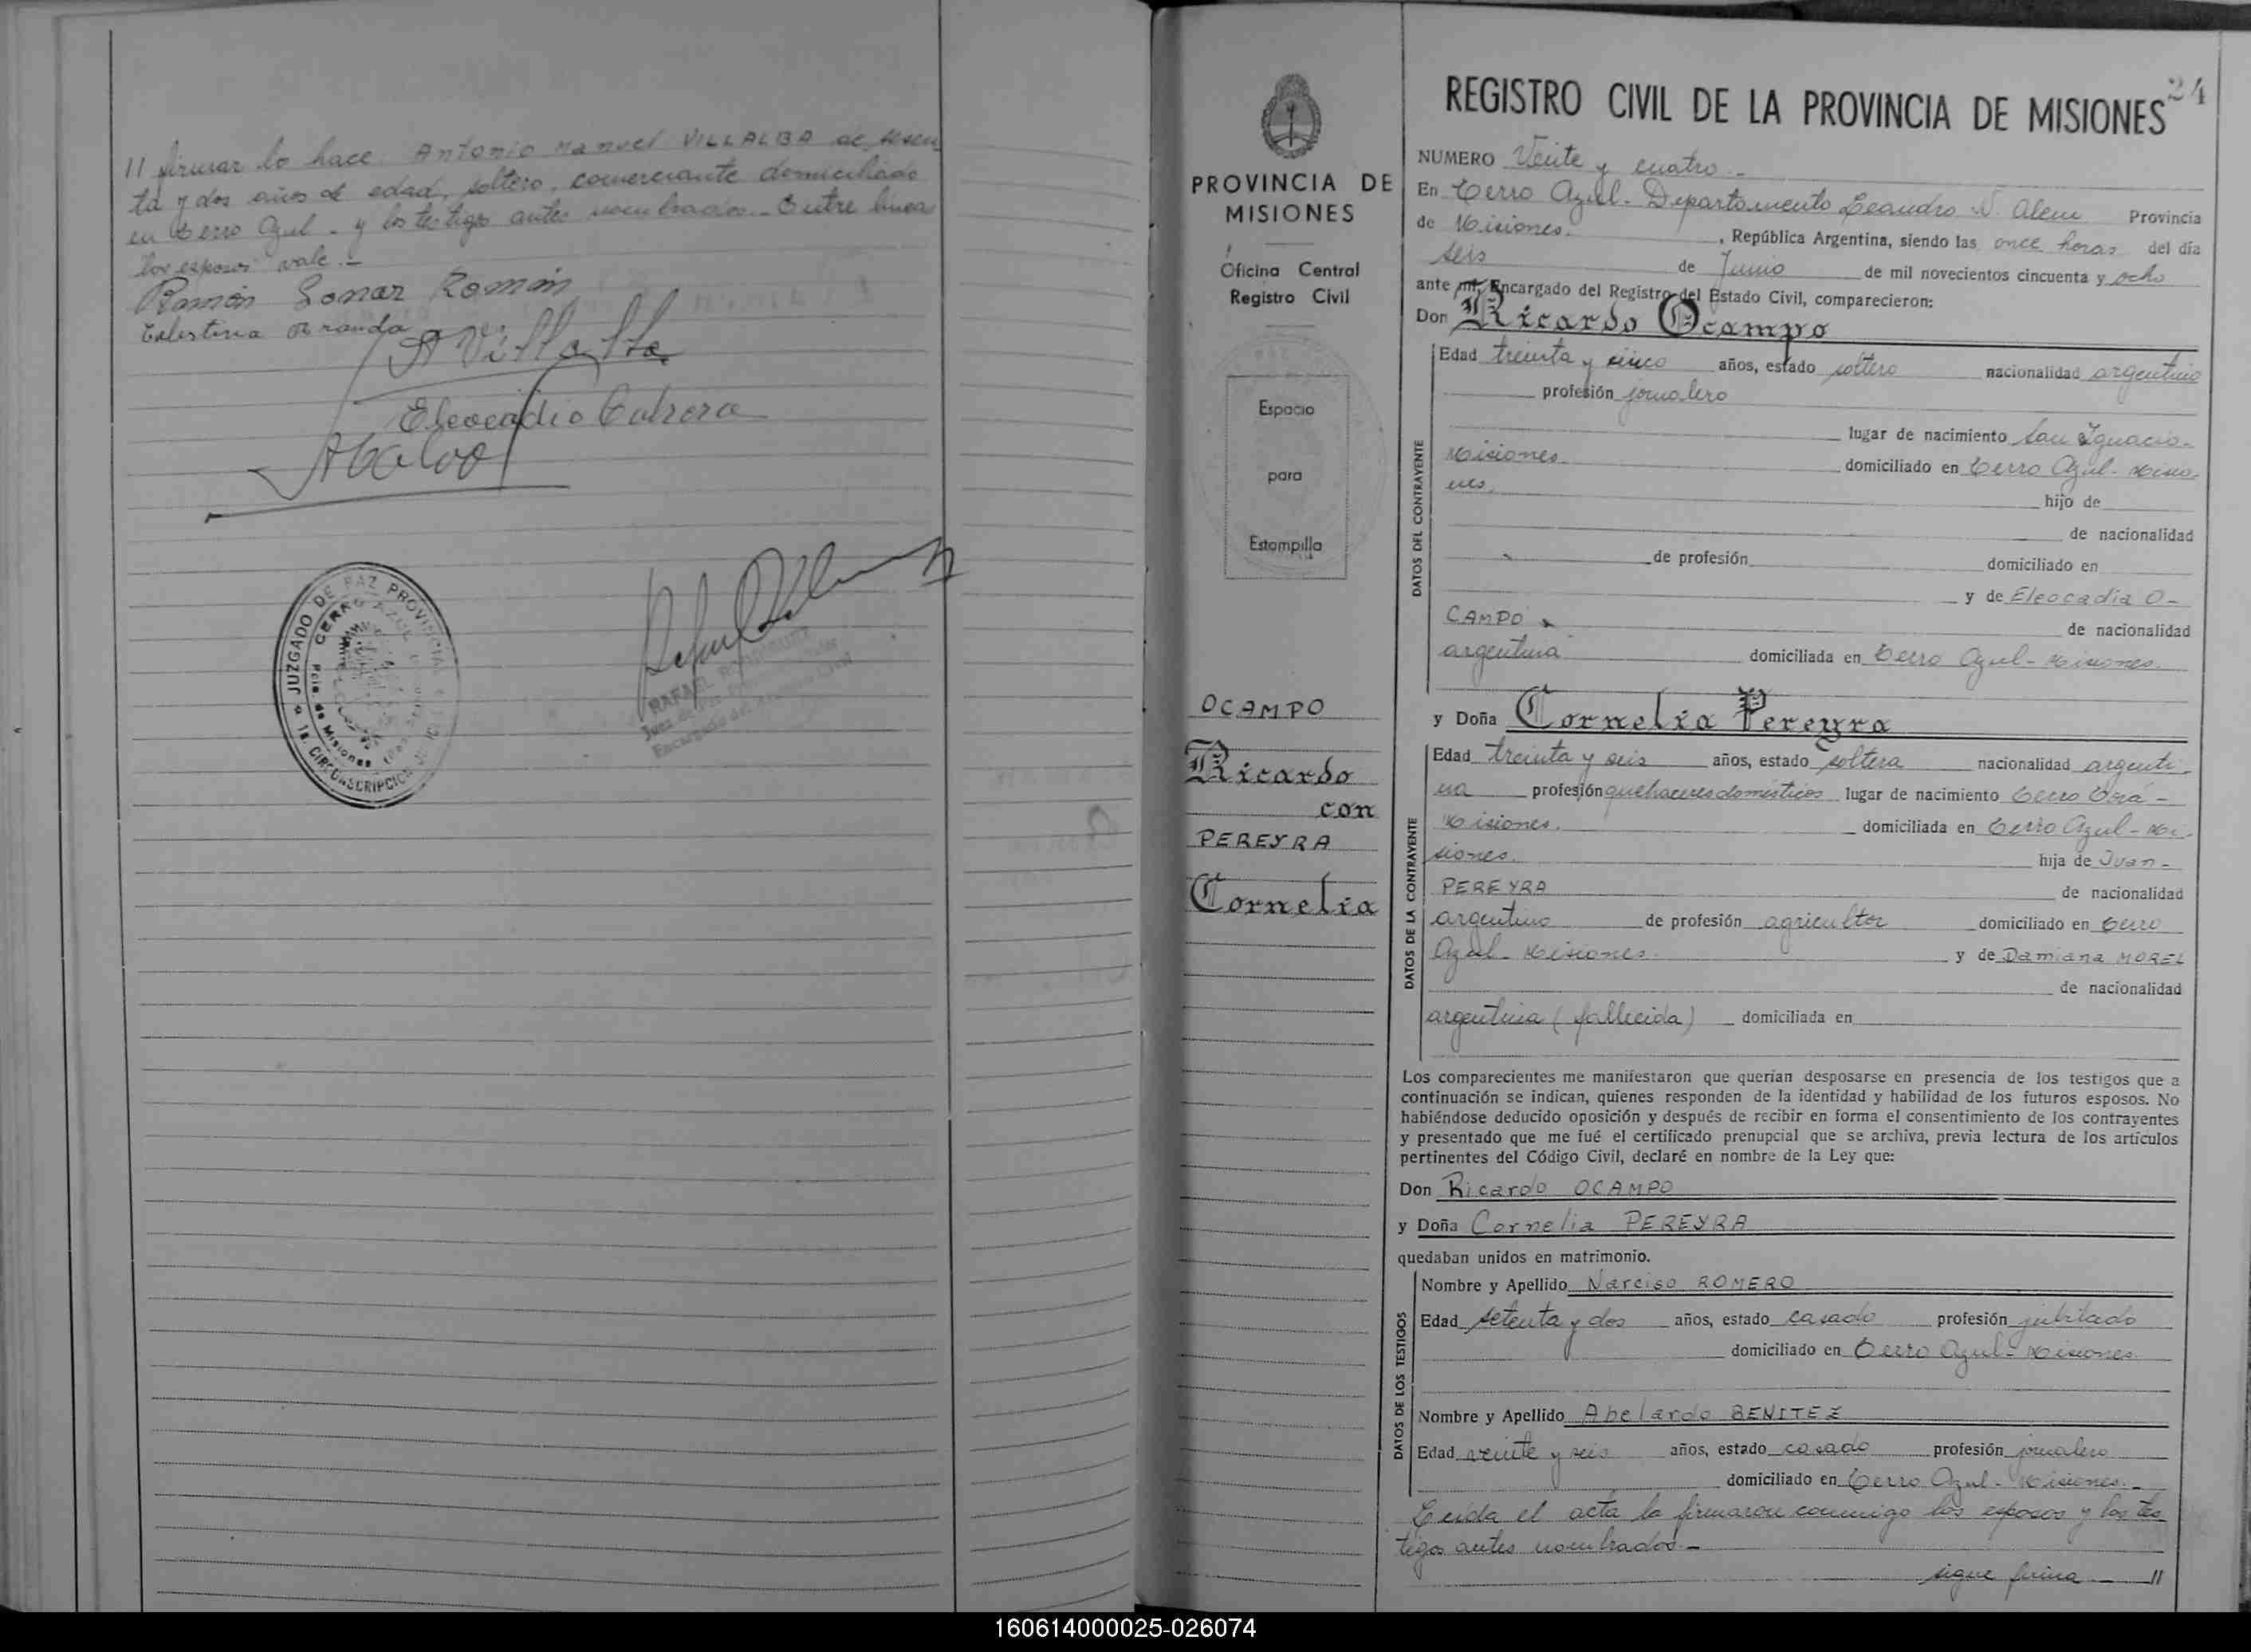 // firmar lo hace Antonio Manuel VILLALBA de sesen
ta y dos años de edad, soltero, comerciante domiciliado
en Cerro Azul - y los testigos antes nombrados. - Entre linea
los esposos vale. -
Ramón Lonar Román
Celestina Miranda
A Villalba
Eleocadio Cabrera
JUZGADO DE PAZ PROVINCIAL
CERRO AZUL
Pcia. de Misiones
1a. CIRCUNSCRIPCION
RAFAEL
Encargado del Registro Civil
PROVINCIA DE
MISIONES
Oficina Central
Registro Civil
Espacio
para
Estampilla
OCAMPO
Ricardo
con
PEREYRA
Cornelia
24
REGISTRO CIVIL DE LA PROVINCIA DE MISIONES
NUMERO Veinte y cuatro. -
En Cerro Azul - Departamento Leandro N. Alem Provincia
de Misiones. , República Argentina, siendo las once horas del día
seis de Junio de mil novecientos cincuenta y ocho
ante mí, Encargado del Registro del Estado Civil, comparecieron:
Don Ricardo Ocampo
DATOS DEL CONTRAYENTE
Edad treinta y cinco años, estado soltero nacionalidad argentino
profesión jornalero
lugar de nacimiento San Ignacio -
Misiones domiciliado en Cerro Azul - Misio-
nes. hijo de
de nacionalidad
de profesión domiciliado en
y de Eleocadia O-
CAMPO de nacionalidad
argentina domiciliada en Cerro Azul - Misiones.
y Doña Cornelia Pereyra
DATOS DE LA CONTRAYENTE
Edad treinta y seis años, estado soltera nacionalidad argenti-
na profesión quehaceres domésticos lugar de nacimiento Cerro Corá -
Misiones. domiciliada en Cerro Azul - Mi-
siones. hija de Juan -
PEREYRA de nacionalidad
argentino de profesión agricultor domiciliado en Cerro
Azul - Misiones. y de Damiana MOREL
de nacionalidad
argentina (fallecida) domiciliada en
Los comparecientes me manifestaron que querían desposarse en presencia de los testigos que a
continuación se indican, quienes responden de la identidad y habilidad de los futuros esposos. No
habiéndose deducido oposición y después de recibir en forma el consentimiento de los contrayentes
y presentado que me fué el certificado prenupcial que se archiva, previa lectura de los artículos
pertinentes del Código Civil, declaré en nombre de la Ley que:
Don Ricardo OCAMPO
y Doña Cornelia PEREYRA
quedaban unidos en matrimonio.
DATOS DE LOS TESTIGOS
Nombre y Apellido Narciso ROMERO
Edad setenta y dos años, estado casado profesión jubilado
domiciliado en Cerro Azul - Misiones.
Nombre y Apellido Abelardo BENITEZ
Edad veinte y seis años, estado casado profesión jornalero
domiciliado en Cerro Azul - Misiones. -
Leída el acta la firmaron conmigo los esposos y los tes
tigos antes nombrados. -
sigue firma //
160614000025-026074